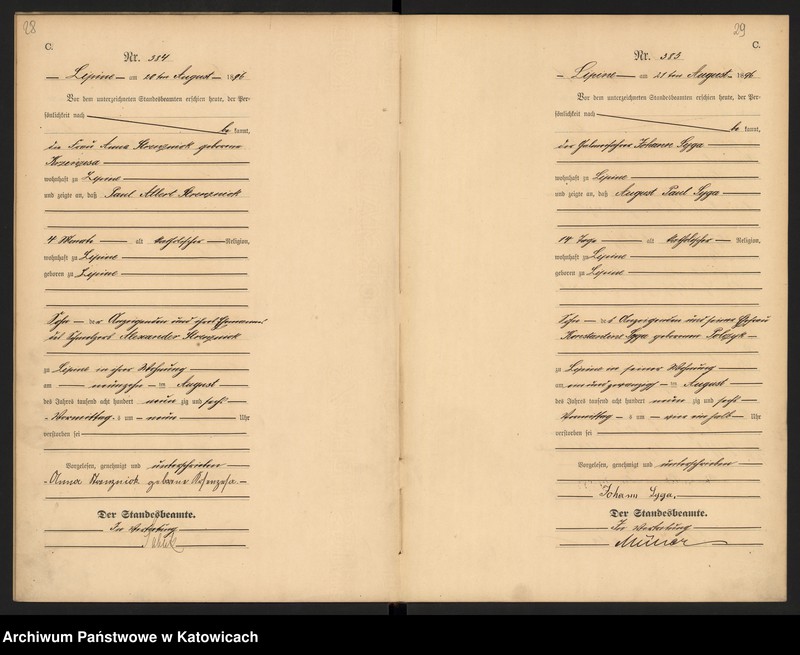 28
C.
Nr. 384
Lipine am 20ten August 1896
Vor dem unterzeichneten Standesbeamten erschien heute, der Per-
sönlichkeit nach
be kannt,
die Frau Anna geborene
wohnhaft zu Lipine
und zeigte an, daß Paul Albert
4 Monate alt katholischer Religion,
wohnhaft zu Lipine
geboren zu Lipine
Sohn der Anzeigenden und ihres Ehemannes
des Schmelzers Alexander
zu Lipine in ihrer Wohnung
am neunzehn ten August
des Jahres tausend acht hundert neun zig und sechs
Vormittag s um neun Uhr
verstorben sei
Vorgelesen, genehmigt und unterschrieben
Anna geborene
Der Standesbeamte.
In Vertretung
29
C.
Nr. 385
Lipine am 21ten August 1896
Vor dem unterzeichneten Standesbeamten erschien heute, der Per-
sönlichkeit nach
be kannt,
der Johann Lyga
wohnhaft zu Lipine
und zeigte an, daß August Paul Lyga
14 Tage alt katholischer Religion,
wohnhaft zu Lipine
geboren zu Lipine
Sohn des Anzeigenden und seiner Ehefrau
Lyga geborenen
zu Lipine in seiner Wohnung
am einundzwanzig ten August
des Jahres tausend acht hundert neun zig und sechs
Vormittag s um ein halb Uhr
verstorben sei
Vorgelesen, genehmigt und unterschrieben
Johann Lyga.
Der Standesbeamte.
In Vertretung
Archiwum Państwowe w Katowicach